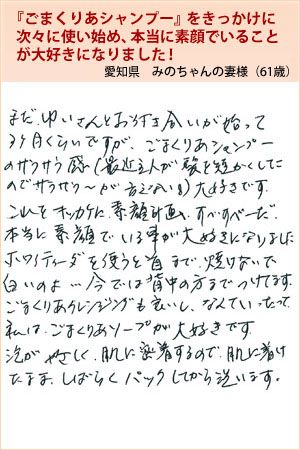 『ごまくりあシャンプー』をきっかけに
次々に使い始め、本当に素顔でいること
が大好きになりました！
愛知県　みのちゃんの妻様（61歳）
まだ、ゆいさんとおつき合いが始って
3ヶ月くらいですが、ごまくりあシャンプー
のサラサラ感（最近主人が髪を短かくしてた
のでサラサラ〜が言えない）大好きです。
これをキッカケに、素顔計画、すべすべーだ。
本当に素顔でいる事が大好きになりました
ホワイティーダを使うと首まで、焼けないで
白いのよ…今では背中の方までつけてます。
ごまくりあクレンジングも良いし、なんていったって
私は、ごまくりあソープが大好きです。
泡がやさしく、肌に密着するので、肌に着け
たまま、しばらくパックしてから洗います。